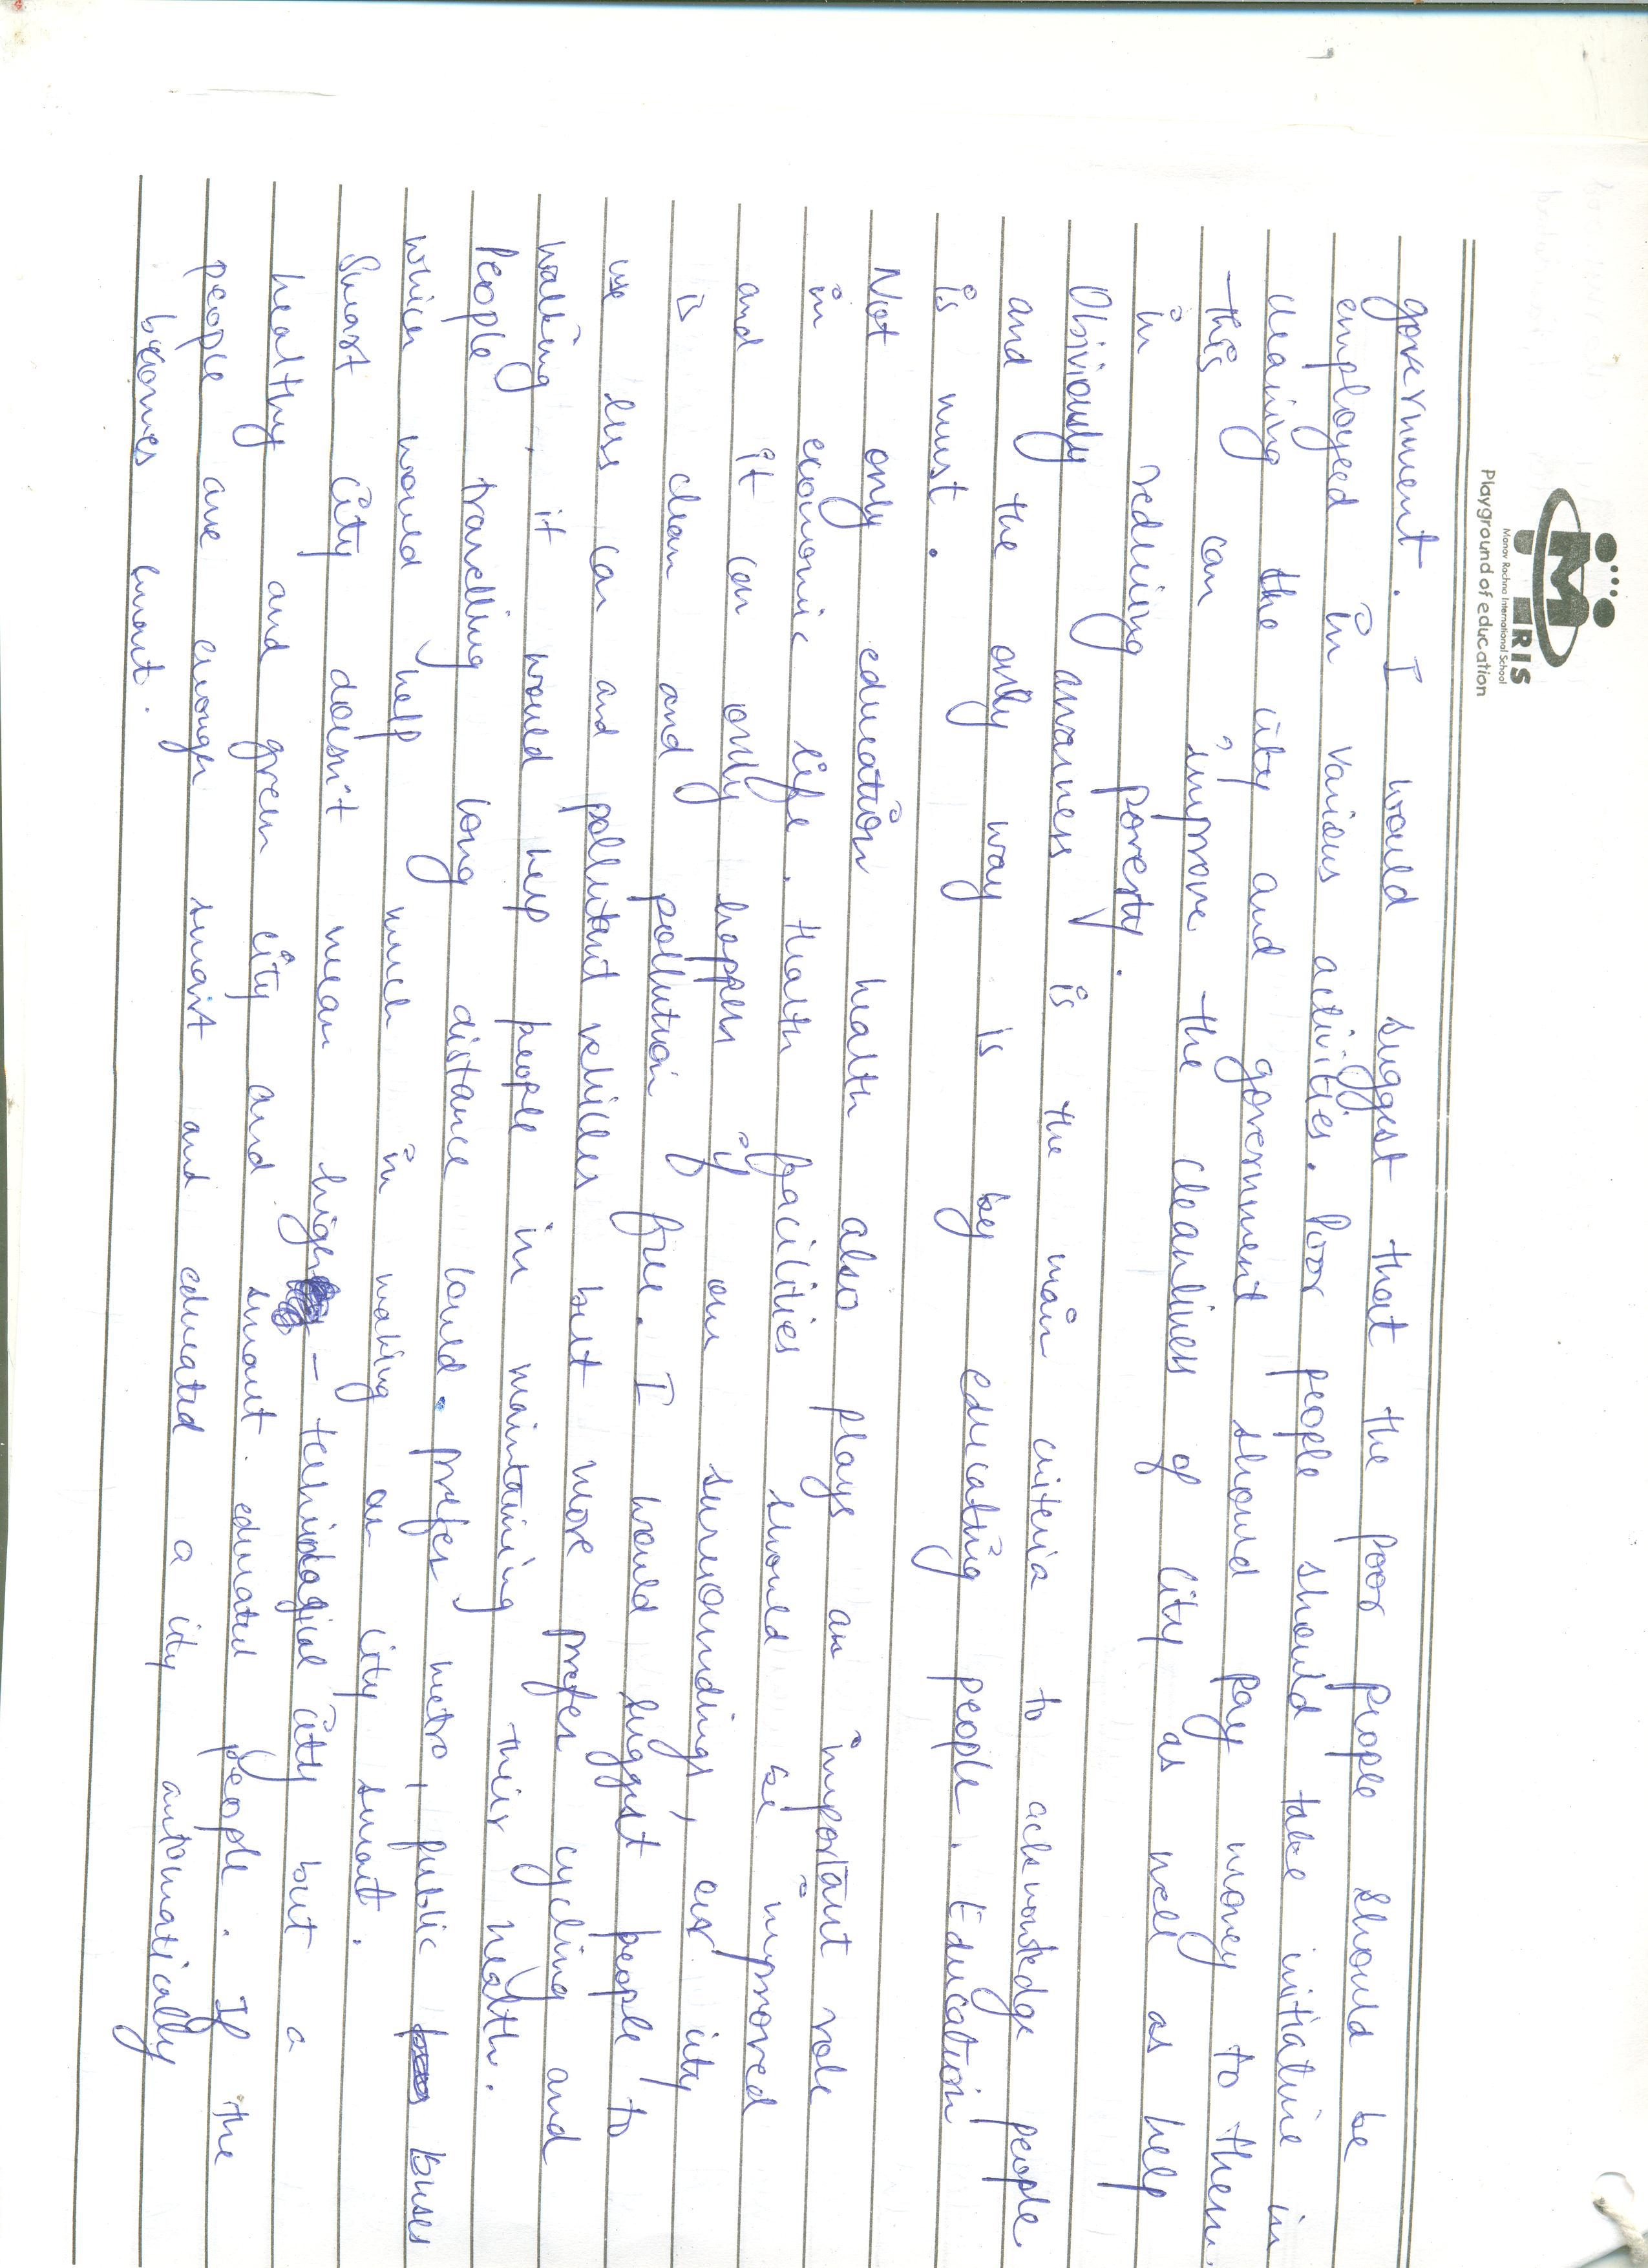 MRIS
Manav Rachna International School
Playground of education
government. I would suggest that the poor people should be
employeed in various activities. Poor people should take initiative in
cleaning the city and government should pay money to them.
this can improve the cleanliness of city as well as help
in reducing poverty.
Obiviously awarness is the main criteria to acknowledge people
and the only way is by educating people. Education
is must.
Not only education health also plays an important role
in economic life. Health facilities should be improved
and it can only happen if our surroundings, our city
is clean and pollution free. I would suggest people to
use less car and pollutant vehicles but more prefer cycling and
walking, it would help people in maintaining their health.
People travelling long distance could prefer metro, public buses
which would help much in making our city smart.
Smart City doesn't mean high - technological city but a
healthy and green city and smart educated people. If the
people are enough smart and educated a city automatically
becomes smart.